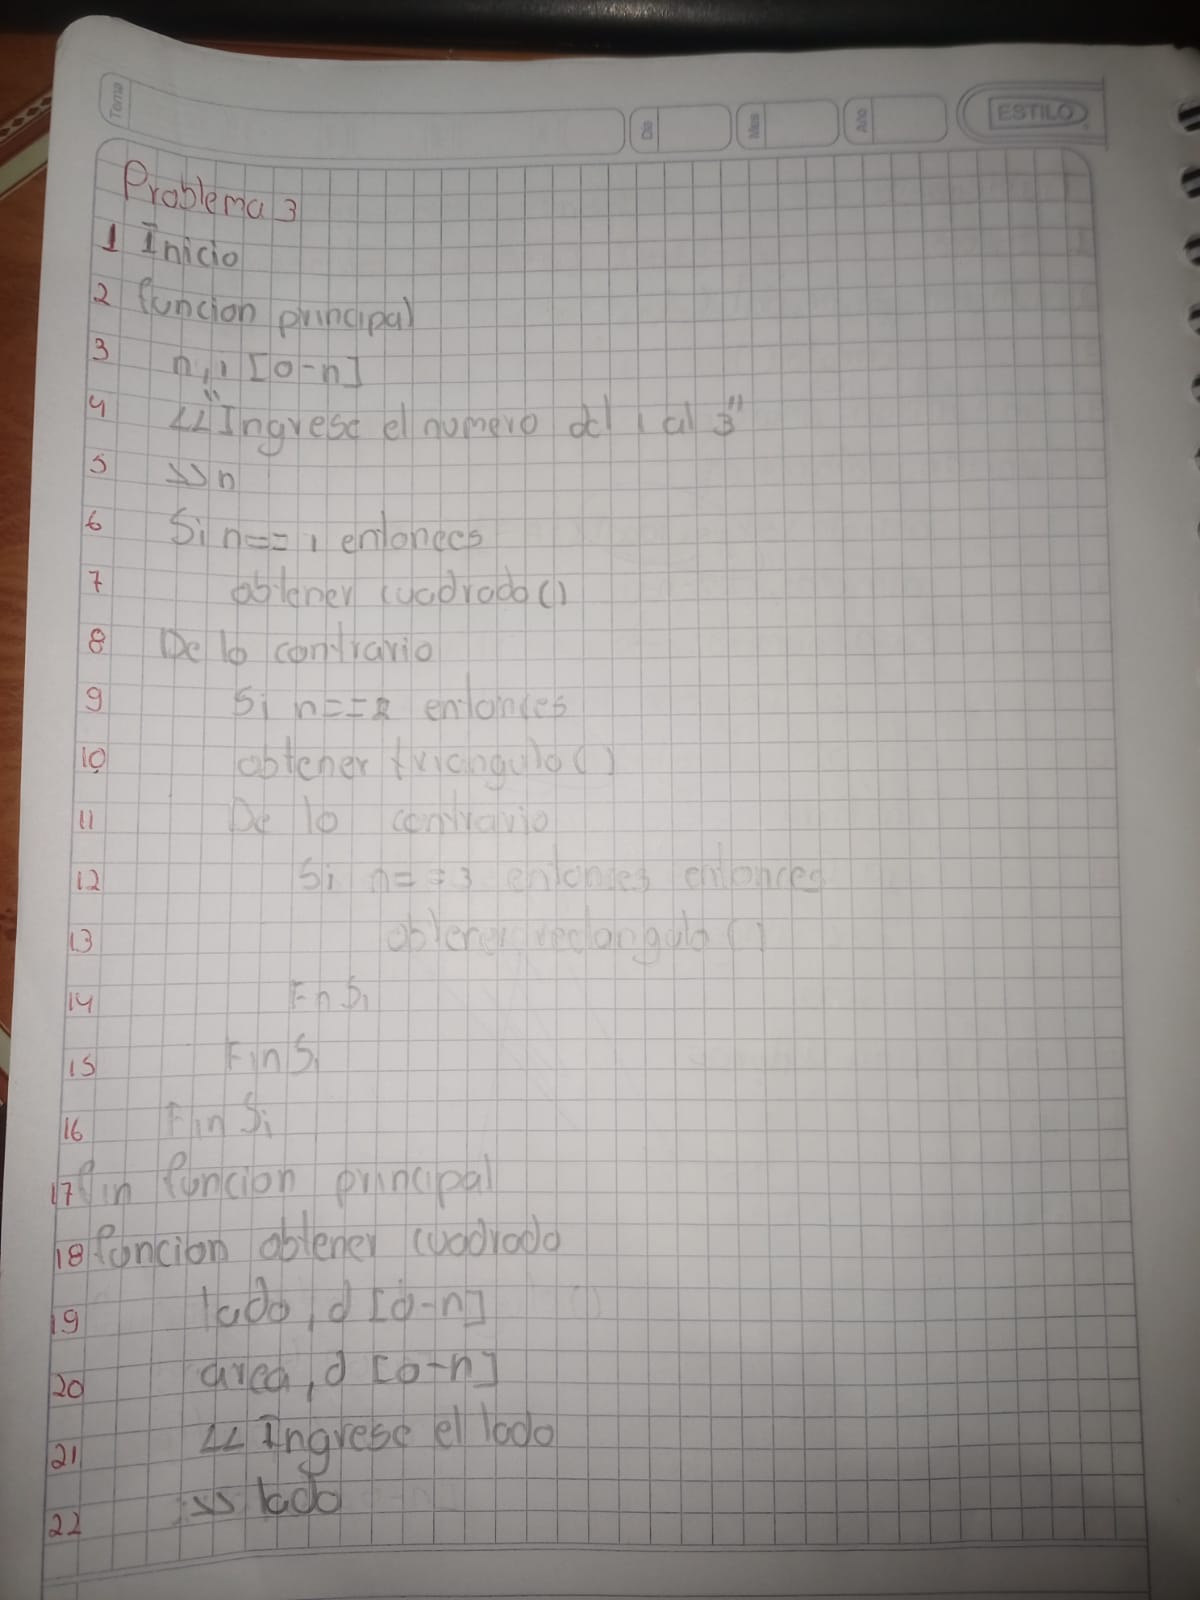 Tema
Dia
Mes
Año
ESTILO
Problema 3
1 Inicio
2 funcion principal
3 n,i [0-n]
4 <<"Ingrese el numero del 1 al 3"
5 >>n
6 Si n==1 entonces
7 obtener cuadrado()
8 De lo contrario
9 Si n==2 entonces
10 obtener triangulo()
11 De lo contrario
12 Si n==3 entonces entonces
13 obtener rectangulo()
14 Fin Si
15 Fin Si
16 Fin Si
17 fin funcion principal
18 funcion obtener cuadrado
19 lado,d [0-n]
20 area,d [0-n]
21 << Ingrese el lado
22 >> lado